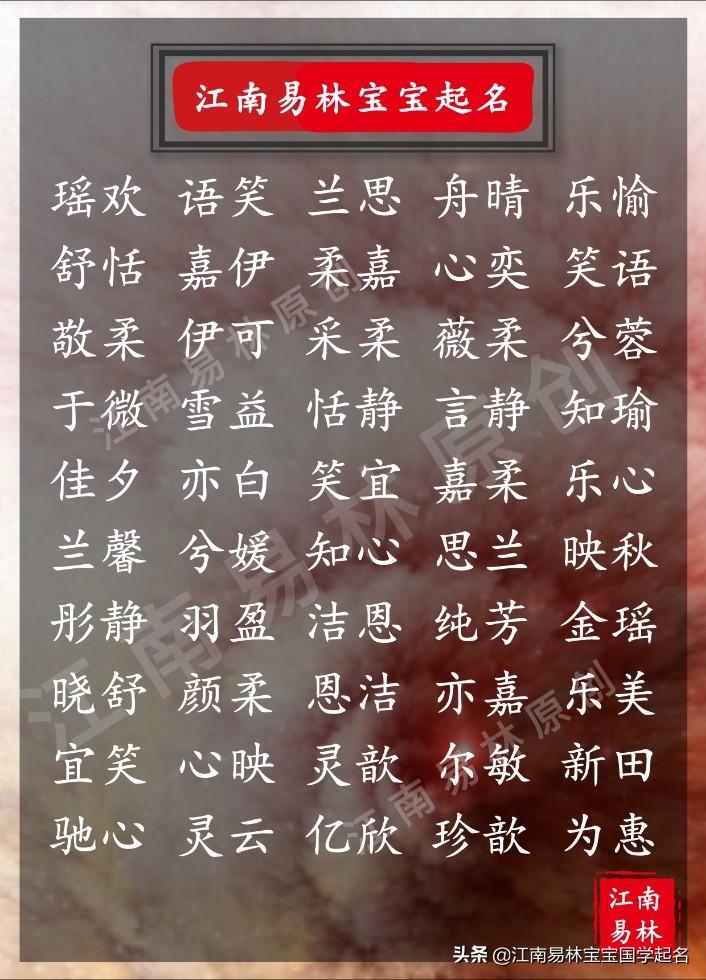 江南易林宝宝起名
瑶欢 语笑 兰思 舟晴 乐愉
舒恬 嘉伊 柔嘉 心奕 笑语
敬柔 伊可 采柔 薇柔 兮蓉
于微 雪益 恬静 言静 知瑜
佳夕 亦白 笑宜 嘉柔 乐心
兰馨 兮媛 知心 思兰 映秋
彤静 羽盈 洁恩 纯芳 金瑶
晓舒 颜柔 恩洁 亦嘉 乐美
宜笑 心映 灵歆 尔敏 新田
驰心 灵云 亿欣 珍歆 为惠
江南易林原创
江南易林原创
江南易林原创
江南
易林
头条 @江南易林宝宝国学起名